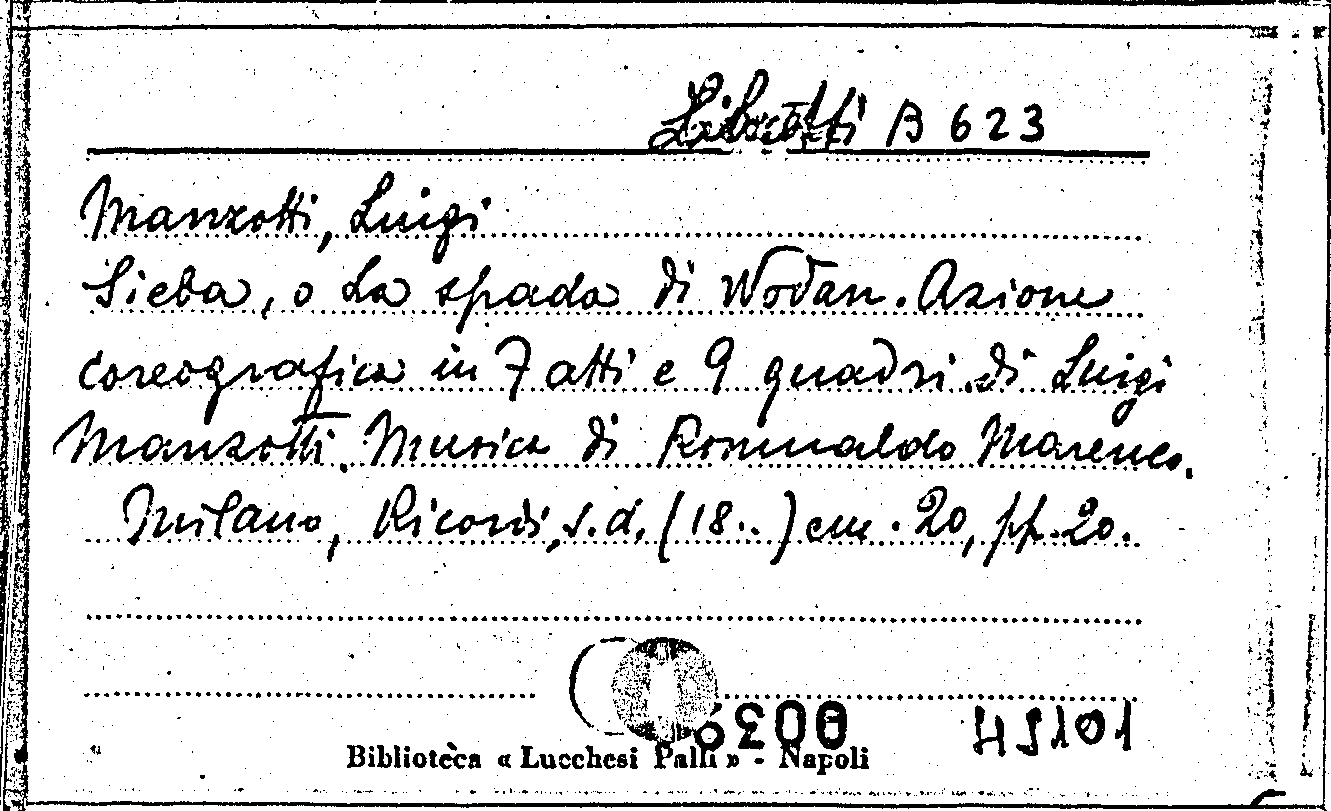 Libretti B 623
Manzotti, Luigi
Sieba, o La spada di Wodan. Azione
coreografica in 7 atti e 9 quadri di Luigi
Manzotti. Musica di Romualdo Marenco.
Milano, Ricordi, s.d. (18..) cm. 20, pp. 20.
Biblioteca « Lucchesi Palli » - Napoli